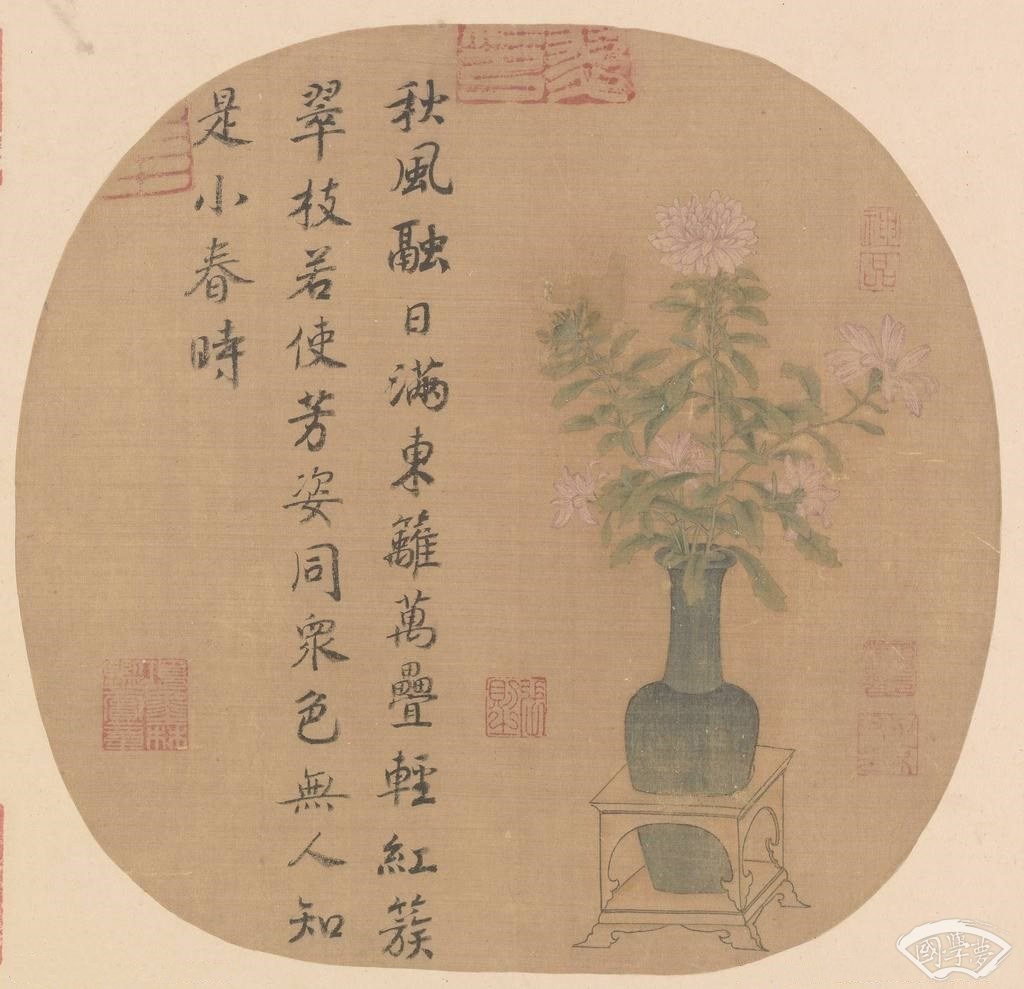 秋風融日滿東籬萬疊輕紅簇
翠枝若使芳姿同衆色無人知
是小春時
神品
國學夢